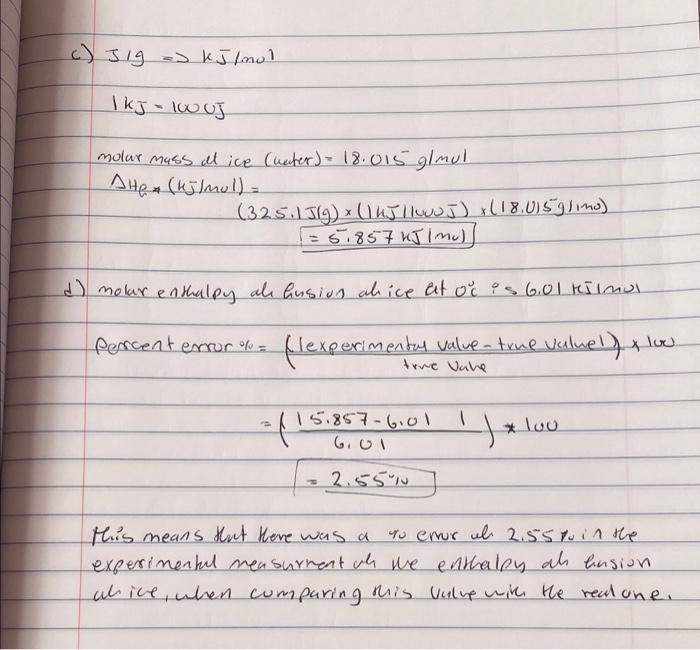 c) J/g => kJ/mol
1 kJ = 1000J
molar mass of ice (water) = 18.015 g/mol
ΔHf (kJ/mol) =
(325.1 J/g) × (1kJ/1000J) × (18.015g/mol)
= 5.857 kJ/mol
d) molar enthalpy of fusion of ice at 0°C is 6.01 kJ/mol
Percent error % = (|experimental value - true value|) * 100
true value
= (|5.857 - 6.01|) * 100
6.01
= 2.55%
this means that there was a % error of 2.55% in the
experimental measurment of the enthalpy of fusion
of ice, when comparing this value with the real one.